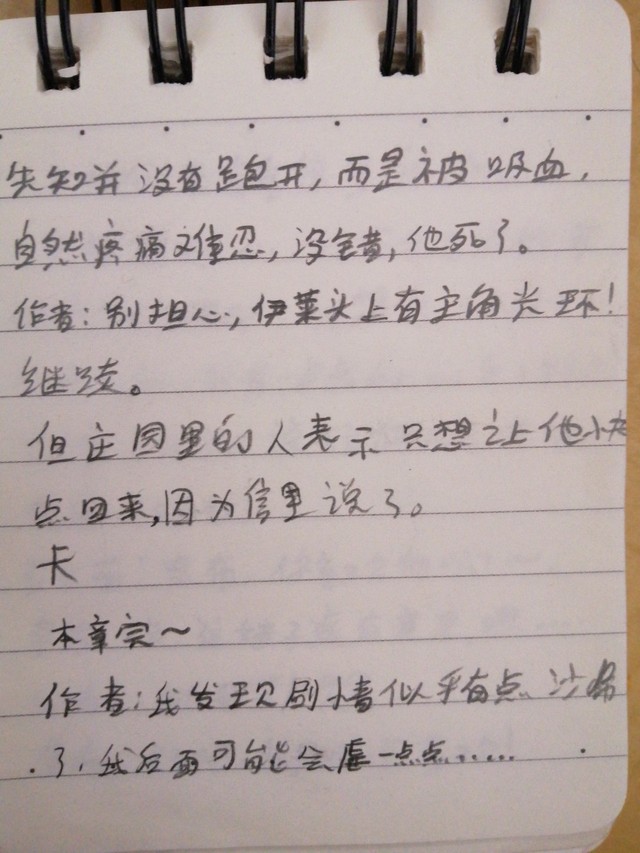 先知并没有跑开，而是被吸血，
自然疼痛难忍，没错，他死了。
作者：别担心，伊莱头上有主角光环！
继续。
但庄园里的人表示只想让他快
点回来，因为信里说了。
卡
本章完～
作者：我发现剧情似乎有点沙
了，我后面可能会虐一点点……